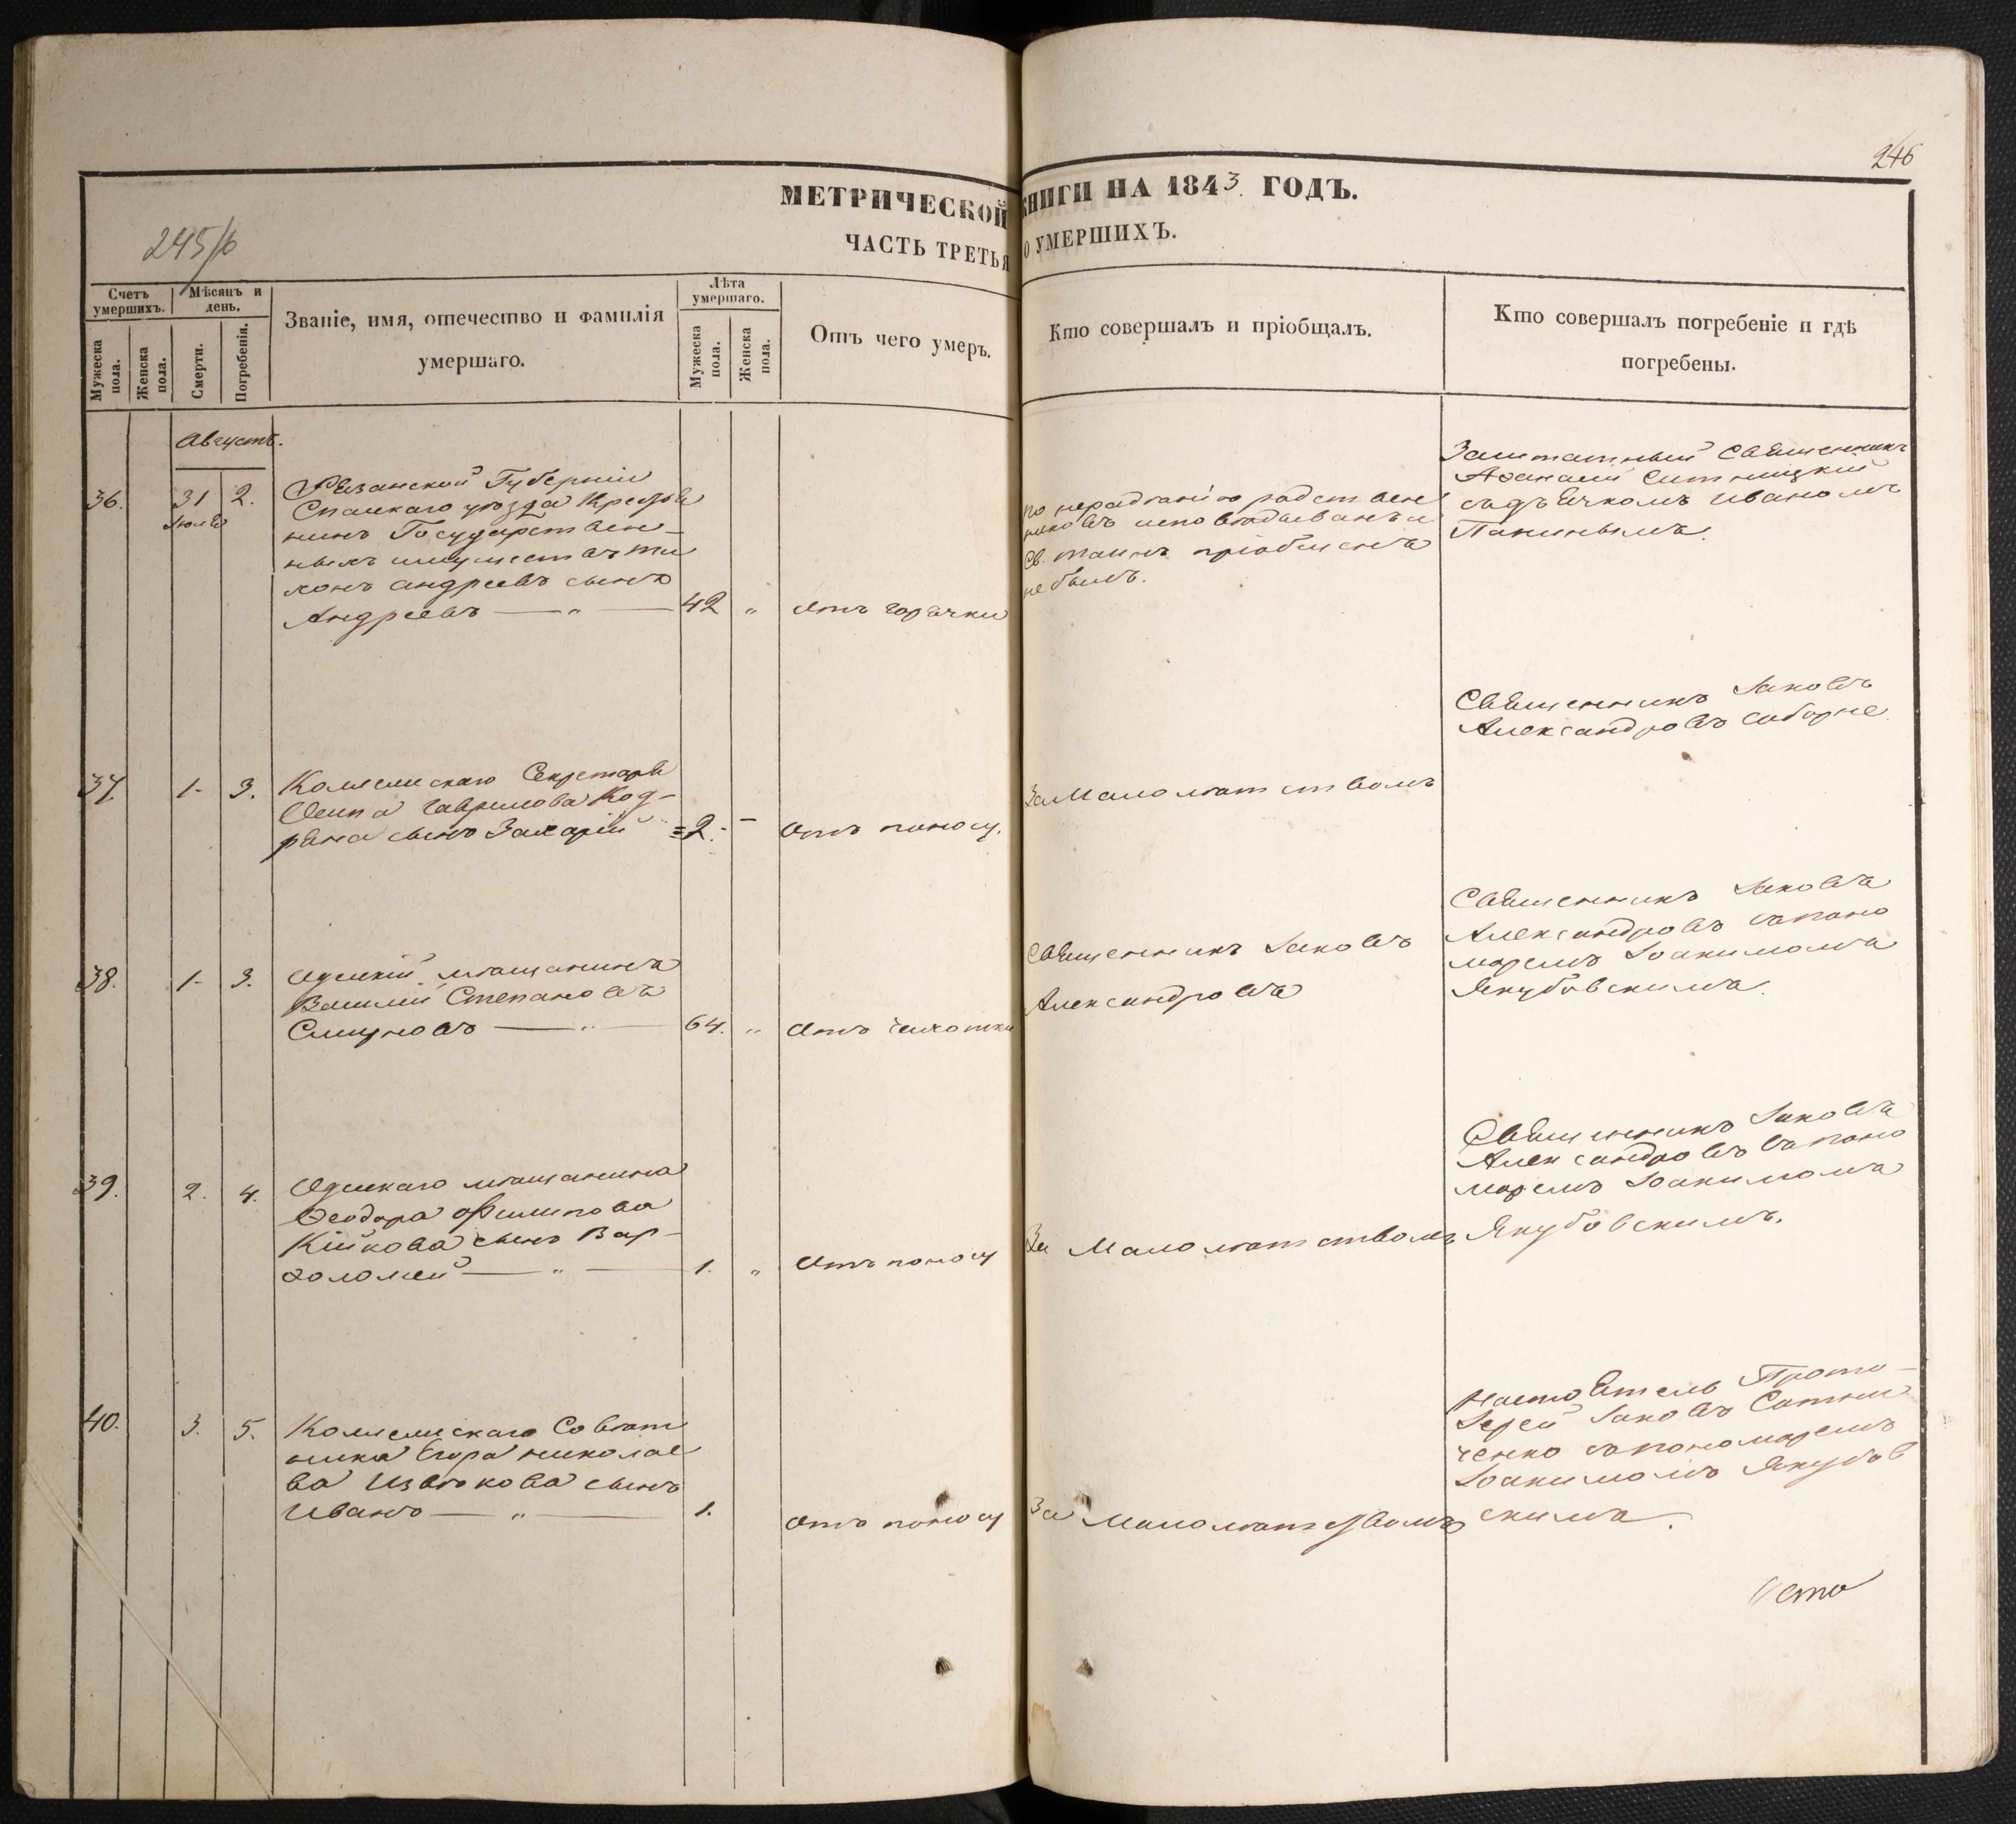 246
245/б
МЕТРИЧЕСКОЙ КНИГИ НА 1843. ГОДЪ.
ЧАСТЬ ТРЕТЬЯ О УМЕРШИХЪ.
Счетъ умершихъ.
Мужеска пола.
Женска пола.
Мѣсяцъ и день.
Смерти.
Погребенія.
Званіе, имя, отечество и фамилія
умершаго.
Лѣта умершаго.
Мужеска пола.
Женска пола.
Отъ чего умеръ.
Кто совершалъ и пріобщалъ.
Кто совершалъ погребеніе и гдѣ
погребены.
Августъ.
36. 31 Іюля 2.
Рязанской Губерніи
Спаскаго уѣзда Крестья
нинъ Государствен-
ныхъ имуществъ Ти
хонъ Андреевъ сынъ
Андреевъ — „ — 42 „ Отъ горячки
по нерадѣнію родствен
никовъ исповѣдыванъ и
Св. таинъ пріобщенъ
не былъ.
Заштатный Священникъ
Афанасій Ситницкій
съ дьячкомъ Иваномъ
Паниными.
37. 1- 3.
Коллежскаго Секретаря
Осипа Гаврилова Код-
ряна сынъ Захарій = 2. - Отъ поносу.
За Малолѣтствомъ
Священникъ Іаковъ
Александровъ соборне.
38. 1- 3.
Одескій мѣщанинъ
Василій Степановъ
Смирновъ — „ — 64. „ Отъ чихотки
Священникъ Іаковъ
Александровъ
Священникъ Іаковъ
Александровъ съ поно
маремъ Іоакимомъ
Якубовскимъ.
39. 2. 4.
Одескаго мѣщанина
Феодора Филипова
Кійкова сынъ Вар-
фоломей — „ — 1. „ Отъ поносу
За Малолѣтствомъ
Священникъ Іаковъ
Александровъ съ поно
маремъ Іоакимомъ
Якубовскимъ.
40. 3. 5.
Коллежскаго Совѣт
ника Егора Николае
ва Извѣкова сынъ
Иванъ — „ — 1. Отъ поносу
За малолѣтствомъ
Настоятель Прото-
Іерей Іаковъ Ситни
ченко съ пономаремъ
Іоакимомъ Якубов
скимъ.